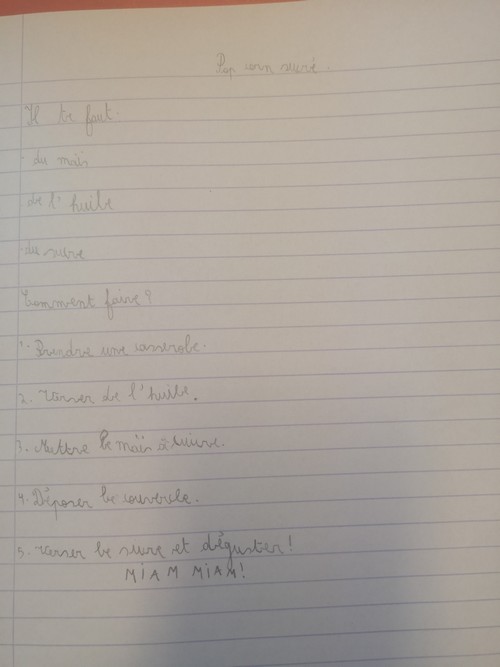 Pop corn sucré.
Il te faut.
- du maïs
- de l'huile
- du sucre
Comment faire ?
1. Prendre une casserole.
2. Verser de l'huile.
3. Mettre le maïs à cuire.
4. Déposer le couvercle.
5. Verser le sucre et déguster !
MIAM MIAM !